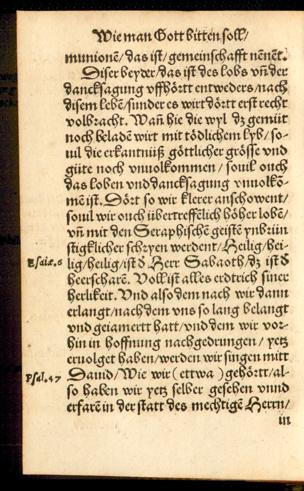 Wie man Gott bitten soll/
munionē/das ist/gemeinschafft nēnēt.
Diser beyder/das ist des lobs vn̄ der
dancksagung vffhört entweders/nach
disem lebē/sunder es wirt dört erst recht
volbracht. Wan̄ hie die wyl dz gemüt
noch beladē wirt mit tödlichem lyb/so-
uil die erkantnüß göttlicher grösse vnd
güte noch vnuolkommen/souil ouch
das loben vnd dancksagung vnuolkō-
mē ist. Dört so wir klerer anschowent/
souil wir ouch übertreffēlich höher lobē/
vn̄ mit den Seraphischē geistē ynbrün
stigklicher schryen werdent/Heilig/hei-
Esaiæ.6
lig/heilig/ist d Herr Sabaoth/dz ist d
heerscharē. Voll ist alles erdtrich siner
herlikeit. Vnd also dem nach wir dann
erlangt/nach dem vns so lang belangt
vnd geiamert hatt/vnd dem wir vor-
hin in hoffnung nachgedrungen/yetz
eruolget haben/werden wir singen mitt
Psal.47
Dauid/Wie wir (ettwa) gehört/al-
so haben wir yetz selber gesehen vnnd
erfarē in der statt des mechtigē Herrn/
in